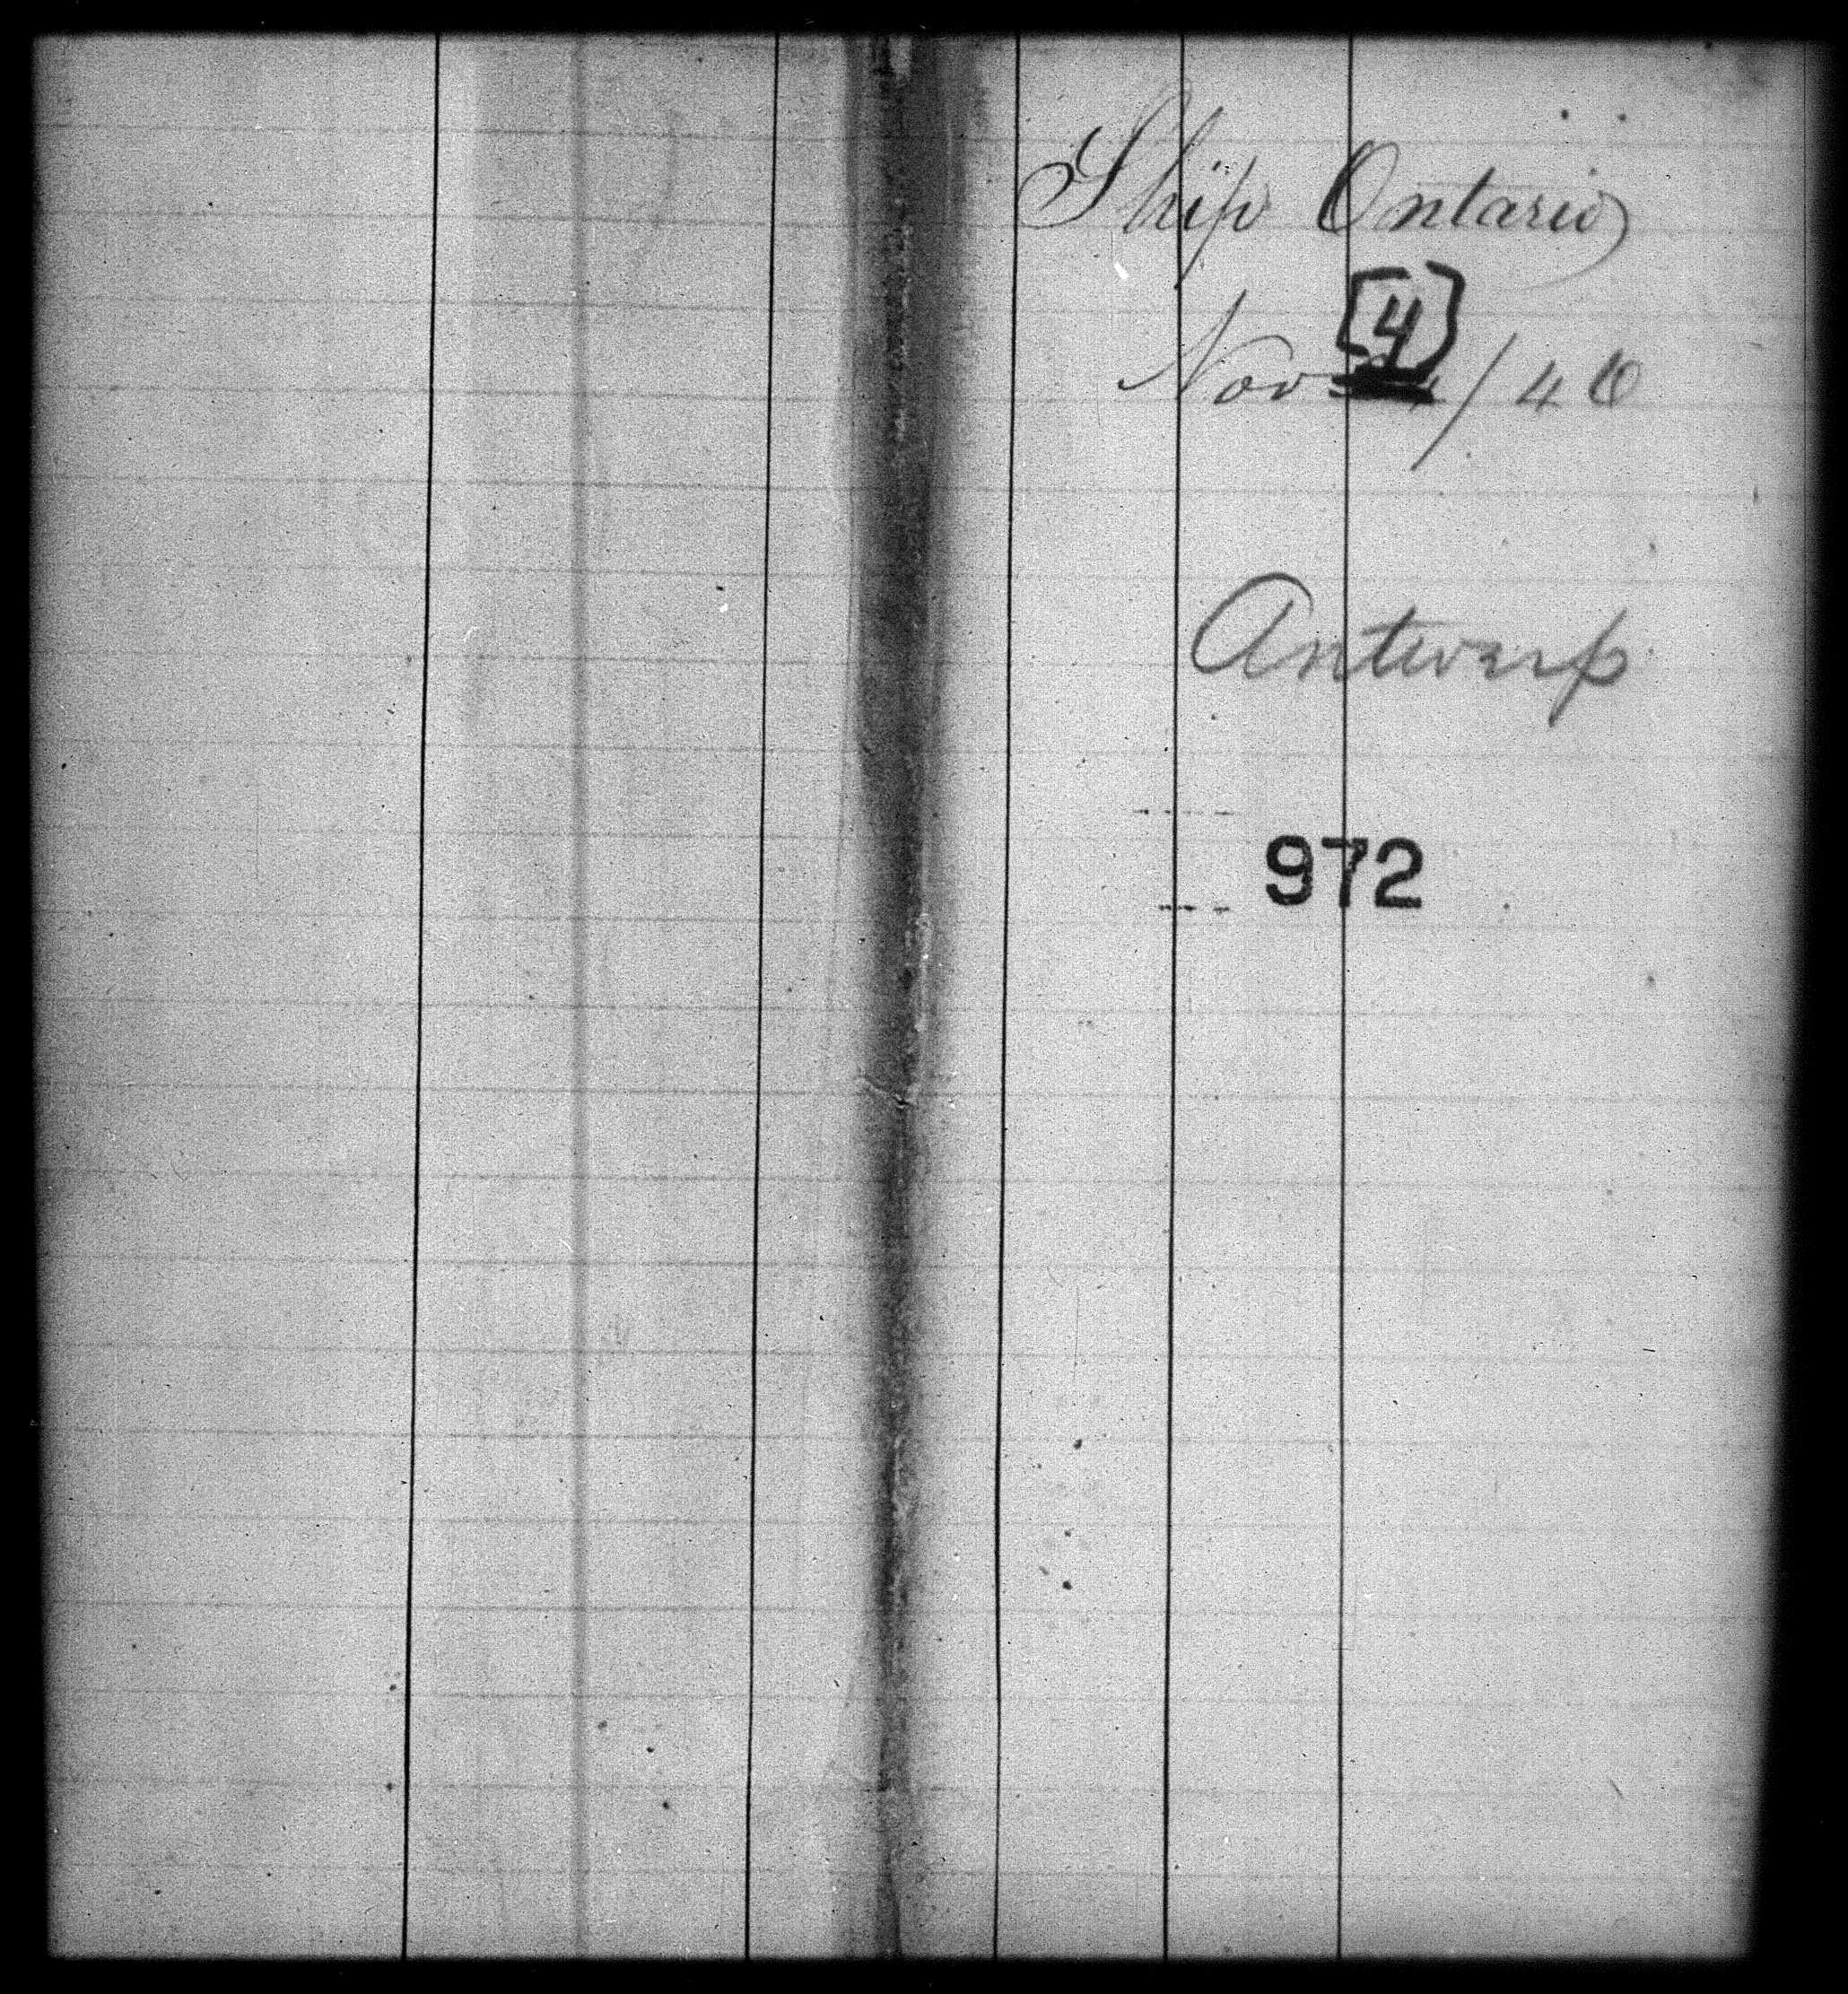 Ship Ontario
[4]
Nov /46
Antwerp
972